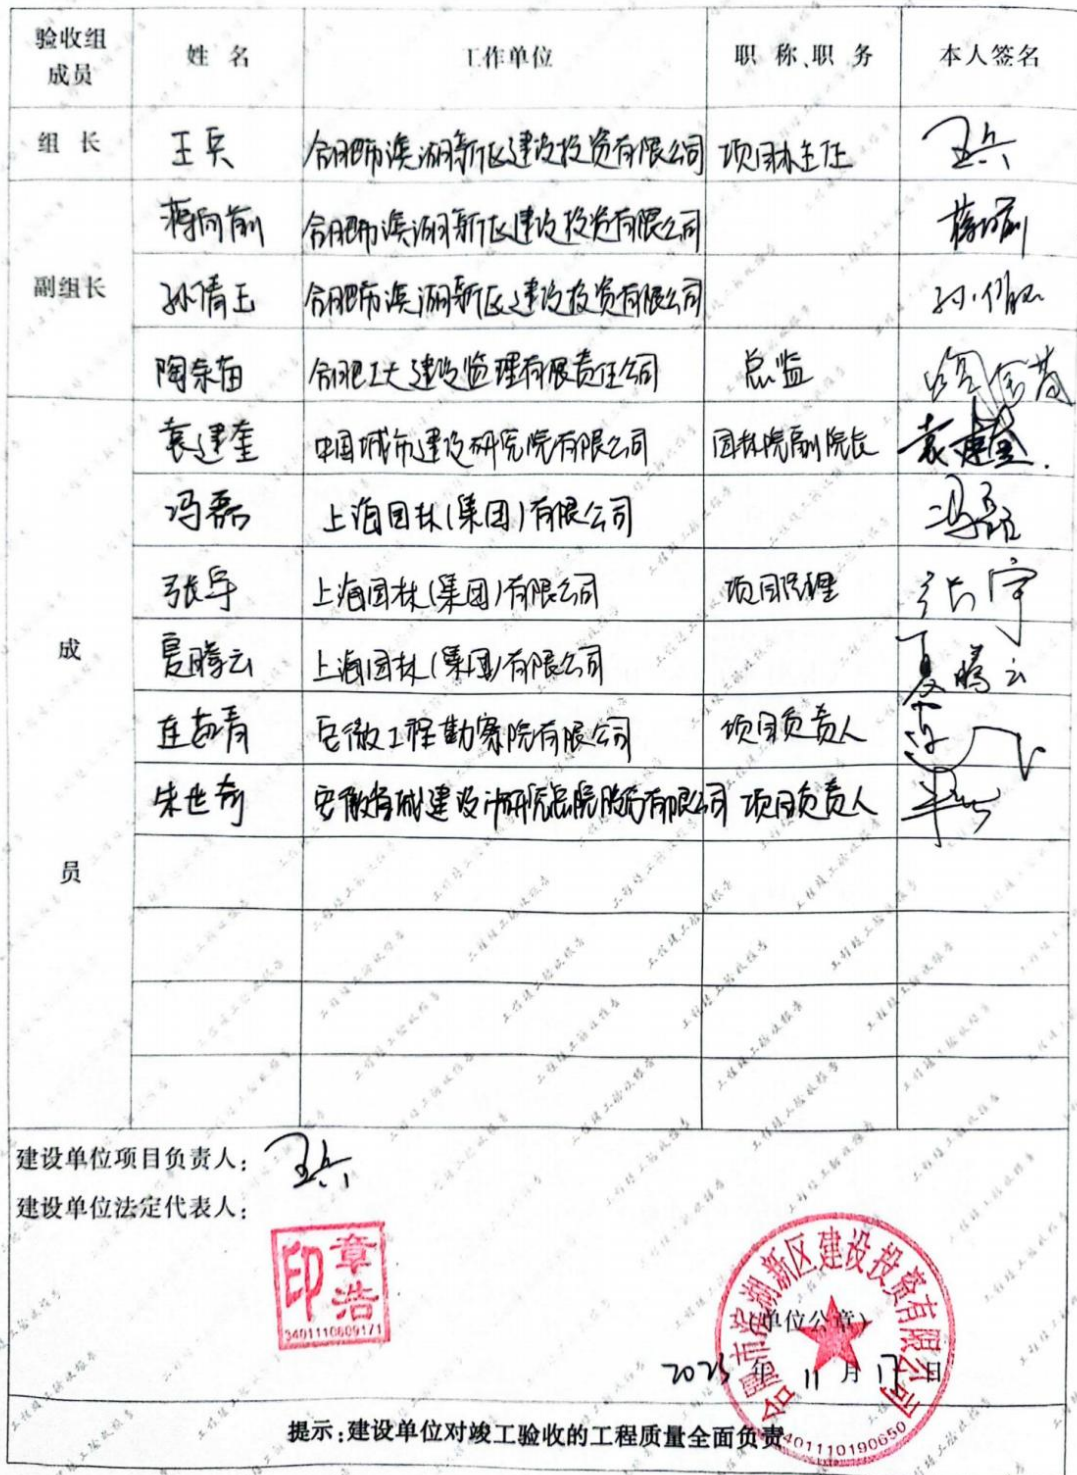 验收组成员 姓 名 工作单位 职 称、职 务 本人签名
组 长 王兵 合肥市滨湖新区建设投资有限公司 项目部主任 王兵
蒋向前 合肥市滨湖新区建设投资有限公司 蒋向前
副组长 孙倩玉 合肥市滨湖新区建设投资有限公司
陶东苗 合肥工大建设监理有限责任公司 总监
袁建奎 中国城市建设研究院有限公司 园林院副院长 袁建奎
冯磊 上海园林(集团)有限公司 冯磊
张宇 上海园林(集团)有限公司 项目经理 张宇
成 夏腾云 上海园林(集团)有限公司 夏腾云
安徽工程勘察院有限公司 项目负责人
朱世奇 安徽省城建设计研究总院股份有限公司 项目负责人
员
建设单位项目负责人: 王兵
建设单位法定代表人:
章浩印
3401110609171
合肥市滨湖新区建设投资有限公司
(单位公章)
2023 年 11 月 17 日
3401110190650
提示:建设单位对竣工验收的工程质量全面负责